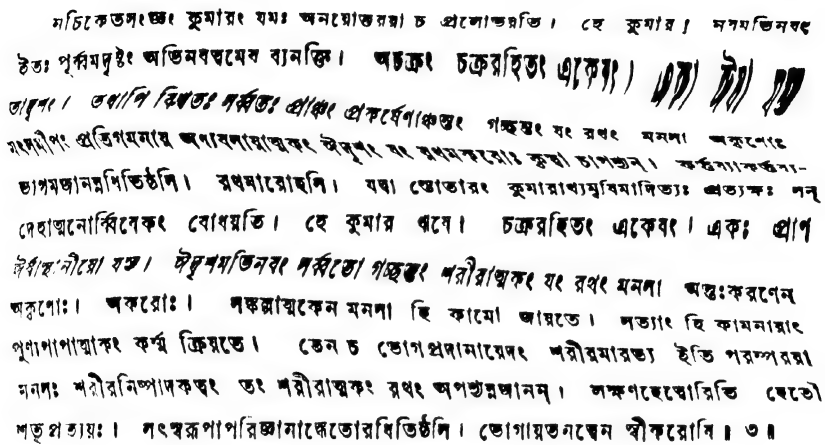 নচিকেতসংজ্ঞং কুমারং যমঃ অনয়োত্তরয়া চ প্রলোভয়তি। হে কুমার! নবমভিনবং
ইতঃ পূর্ব্বমদৃষ্টং অভিনবত্বমেব ব্যনক্তি। অচক্রং চক্ররহিতং একেষং। একা ঈষা যস্য
তাদৃশং। তথাপি বিশ্বতঃ সর্ব্বতঃ প্রাঞ্চং প্রকর্ষেণাঞ্চন্তং গচ্ছন্তং যং রথং মনসা অকৃণোঃ
মৎসমীপং প্রতিগমনায় অধ্যবসায়াত্মকং ঈদৃশং যং রথমকরোঃ কৃত্বা চাপশ্যন্। কর্ত্তব্যাকর্ত্তব্য-
ভাগমজানন্নধিতিষ্ঠসি। রথমারোহসি। যদ্বা স্তোতারং কুমারাখ্যমৃষিমাদিত্যঃ প্রত্যক্ষঃ সন্
দেহাত্মনোর্ব্বিবেকং বোধয়তি। হে কুমার ঋষে। চক্ররহিতং একেষং। একঃ প্রাণ
ঈষাস্থানীয়ো যস্য। ঈদৃশমভিনবং সর্ব্বতো গচ্ছন্তং শরীরাত্মকং যং রথং মনসা অন্তঃকরণেন
অকৃণোঃ। অকরোঃ। সঙ্কল্পাত্মকেন মনসা হি কামো জায়তে। সত্যাং হি কামনায়াং
পুণ্যপাপাত্মকং কর্ম্ম ক্রিয়তে। তেন চ ভোগপ্রদানায়েদং শরীরমারভ্য ইতি পরম্পরয়া
মনসঃ শরীরনিষ্পাদকত্বং তং শরীরাত্মকং রথং অপশ্যন্নজানন্। লক্ষণহেত্বোরিতি হেতৌ
শতৃপ্রত্যয়ঃ। সৎস্বরূপাপরিজ্ঞানাদ্ধেতোরধিতিষ্ঠসি। ভোগায়তনত্বেন স্বীকরোষি॥ ৩॥